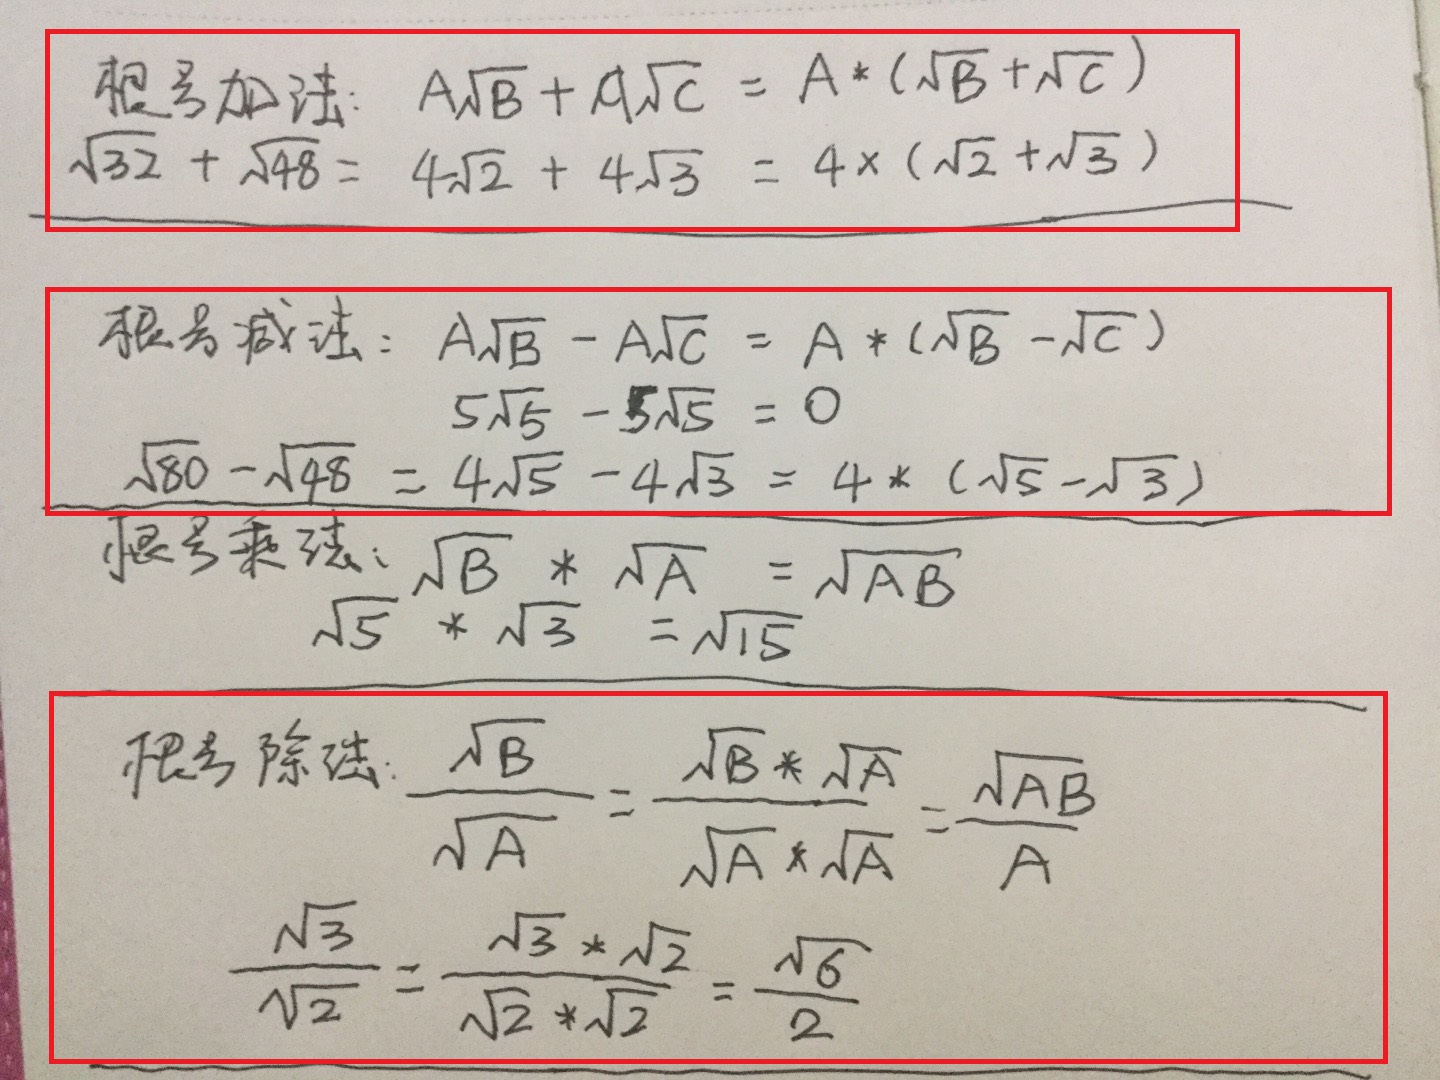 根号加法: A√B + A√C = A * (√B + √C)
√32 + √48 = 4√2 + 4√3 = 4 × (√2 + √3)
根号减法: A√B - A√C = A * (√B - √C)
5√5 - 5√5 = 0
√80 - √48 = 4√5 - 4√3 = 4 * (√5 - √3)
根号乘法: √B * √A = √AB
√5 * √3 = √15
根号除法: √B/√A = (√B * √A)/(√A * √A) = √AB/A
√3/√2 = (√3 * √2)/(√2 * √2) = √6/2